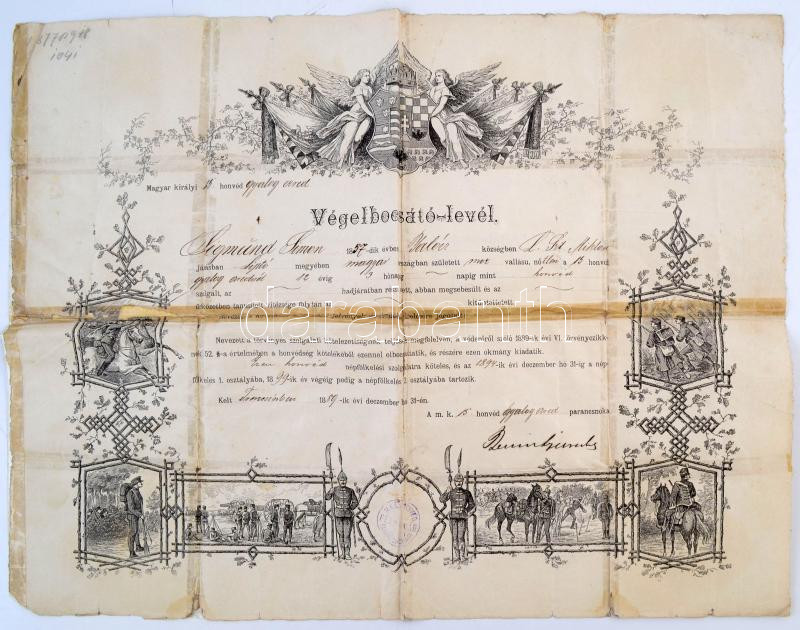 1041
Magyar királyi 15 honvéd gyalog ezred
Végelbocsátó-levél.
Sigmund Simon 1857-dik évben községben L. Szt Miklósi
járásban liptó megyében magyar országban született moz vallásu, nőtlen a 15 honvéd
gyalog ezredben 12 évig hónap napig mint honvéd
szolgált, az hadjáratban részvett, abban megsebesült és az
ütközetben tanusított vitézsége folytán az kitüntettetett
Nevezett a törvényes szolgálati kötelezettségnek teljesen megfelelvén, a véderőről szóló 1889-ik évi VI. törvényczikk-
nek 52. §-a értelmében a honvédség kötelékéből ezennel elbocsáttatik, és részére ezen okmány kiadatik.
Ezen honvéd népfölkelési szolgálatra köteles, és az 1894-ik évi deczember hó 31-ig a nép-
fölkelés 1. osztályába, 1899-ik év végéig pedig a népfölkelés 2. osztályába tartozik.
Kelt Trencsénben 1889-ik évi deczember hó 31-én.
A m. k. 15 honvéd gyalog ezred parancsnoka
darabanth